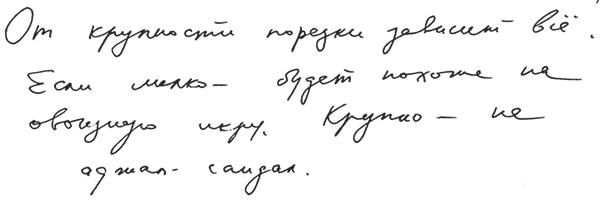 От крупности порезки зависит всё.
Если мелко – будет похоже на
овощную икру. Крупно – не
аджап-сандал.